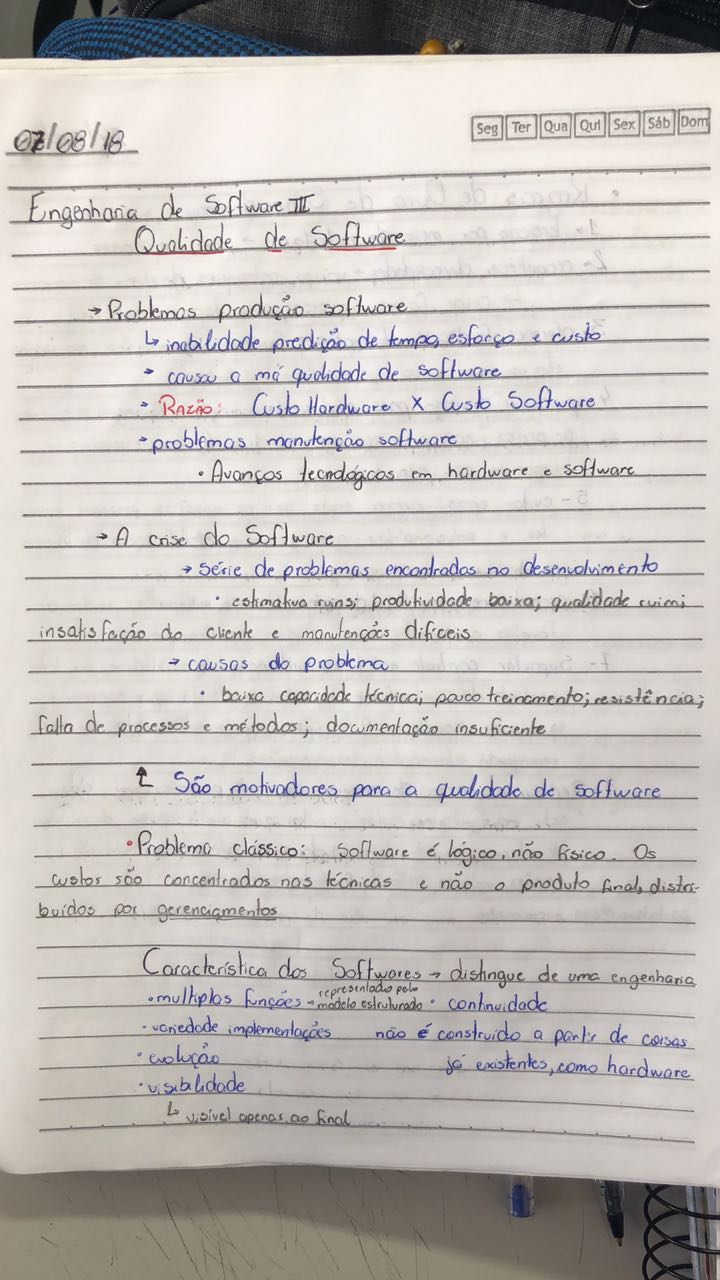 07/08/18
Seg Ter Qua Qui Sex Sáb Dom
Engenharia de Software III
Qualidade de Software
→ Problemas produção software
↳ inabilidade predição de tempo, esforço e custo
→ causa a má qualidade de software
→ RAZÃO: Custo Hardware X Custo Software
→ problemas manutenção software
• Avanços tecnológicos em hardware e software
→ A crise do Software
→ série de problemas encontrados no desenvolvimento
• estimativa ruins; produtividade baixa; qualidade ruim;
insatisfação do cliente e manutenções difíceis
→ causas do problema
• baixa capacidade técnica; pouco treinamento; resistência;
falta de processos e métodos; documentação insuficiente
↳ São motivadores para a qualidade de software
• Problema clássico: software é lógico, não físico. Os
custos são concentrados nas técnicas e não o produto final, distri-
buídos por gerenciamentos
Característica dos Softwares → distingue de uma engenharia
• multiplas funções → representado pelo modelo estruturado • continuidade
• variedade implementações não é construído a partir de coisas
• evolução já existentes, como hardware
• visibilidade
↳ visível apenas ao final